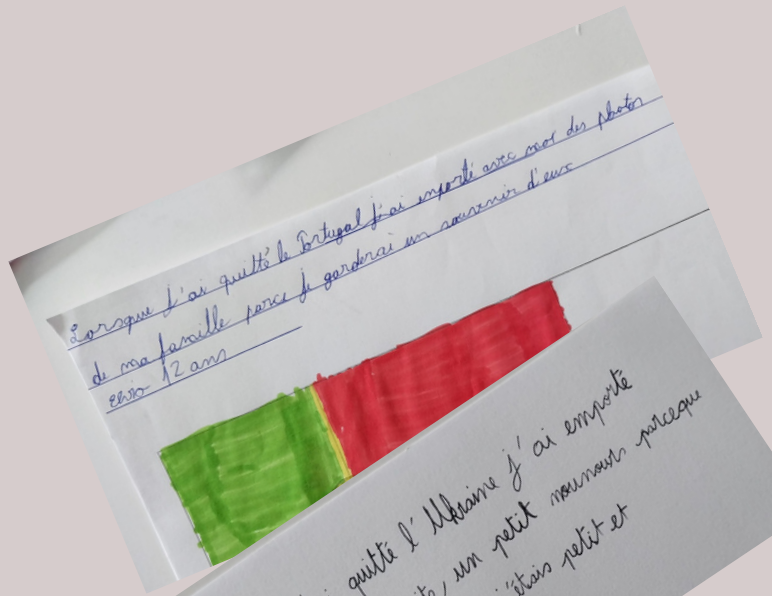 Lorsque j'ai quitté le Portugal j'ai emporté avec moi des photos
de ma famille parce je garderai un souvenir d'eux
12 ans
quitté l'Ukraine j'ai emporté
un petit nounours parceque
j'étais petit et